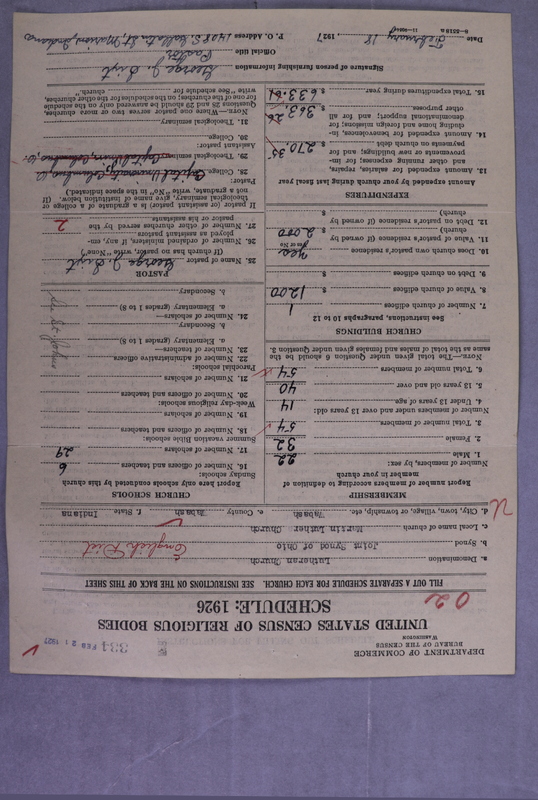 DEPARTMENT OF COMMERCE
BUREAU OF THE CENSUS
WASHINGTON
334 FEB 21 1927
UNITED STATES CENSUS OF RELIGIOUS BODIES
SCHEDULE: 1926
02
FILL OUT A SEPARATE SCHEDULE FOR EACH CHURCH. SEE INSTRUCTIONS ON THE BACK OF THIS SHEET
a. Denomination Lutheran Church
b. Synod Joint Synod of Ohio English Dist
c. Local name of church Martin Luther Church
d. City, town, village, or township, etc. Wabash e. County Wabash f. State Indiana
MEMBERSHIP
Report number of members according to definition of
member in your church
Number of members, by sex:
1. Male 22
2. Female 32
3. Total number of members 54
Number of members under and over 13 years old:
4. Under 13 years of age 14
5. 13 years old and over 40
6. Total number of members 54
NOTE.—The total given under Question 6 should be the
same as the total of males and females given under Question 3.
CHURCH BUILDINGS
See instructions, paragraphs 10 to 12
7. Number of church edifices 1
8. Value of church edifices $ 1200
9. Debt on church edifices $
10. Does church own pastor's residence yes
Yes or No
11. Value of pastor's residence (if owned by
church) $ 2000
12. Debt on pastor's residence (if owned by
church) $
EXPENDITURES
Amount expended by your church during last fiscal year
13. Amount expended for salaries, repairs,
and other running expenses; for im-
provements or new buildings; and for
payments on church debt $ 270.35
14. Amount expended for benevolences, in-
cluding home and foreign missions; for
denominational support; and for all
other purposes $ 363.26
15. Total expenditures during year $ 633.61
CHURCH SCHOOLS
Report here only schools conducted by this church
Sunday schools:
16. Number of officers and teachers 6
17. Number of scholars 29
Summer vacation Bible schools:
18. Number of officers and teachers
19. Number of scholars
Week-day religious schools:
20. Number of officers and teachers
21. Number of scholars
Parochial schools:
22. Number of administrative officers
23. Number of teachers—
a. Elementary (grades 1 to 8)
b. Secondary
24. Number of scholars—
a. Elementary (grades 1 to 8)
b. Secondary
PASTOR
25. Name of pastor George J. Dist
(If church has no pastor, write "None")
26. Number of ordained ministers, if any, em-
ployed as assistant pastors
27. Number of other churches served by the
pastor or his assistants 2
If pastor or assistant pastor is a graduate of a college or
theological seminary, give name of institution below. (If
not a graduate, write "No" in the space indicated.)
Pastor:
28. College Capital University, Columbus, O.
29. Theological seminary Capital Univ., Columbus, O.
Assistant pastor:
30. College
31. Theological seminary
NOTE.—Where one pastor serves two or more churches,
Questions 28 and 29 should be answered only on the schedule
for one of the churches; on the schedules for the other churches,
write "See schedule for church."
Signature of person furnishing information George J. Dist
Official title Pastor
Date February 18 1927 P. O. Address 1408 S. Gallatin St, Marion, Indiana
8-5518a